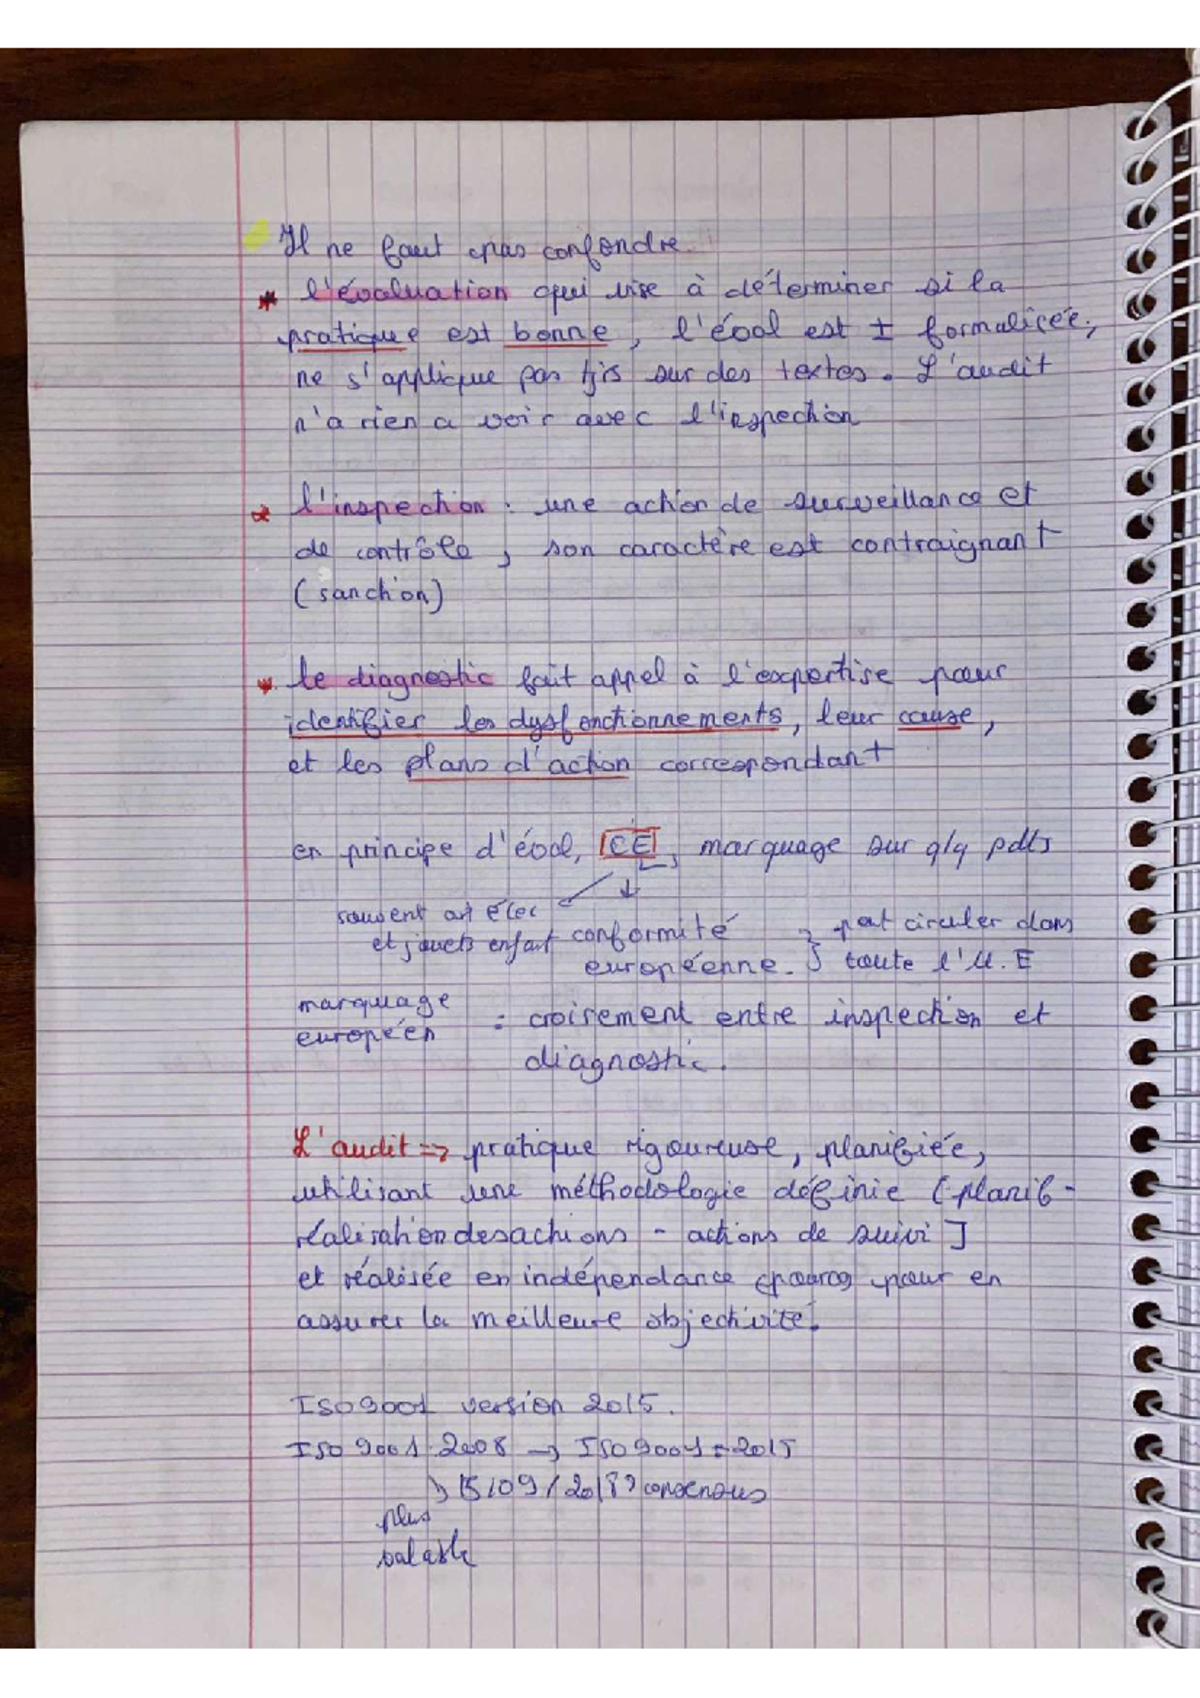 Il ne faut pas confondre
* l'évaluation qui vise à déterminer si la
pratique est bonne, l'éval est ± formalisée,
ne s'applique pas tjrs sur des textes. L'audit
n'a rien a voir avec l'inspection
* l'inspection : une action de surveillance et
de contrôle, son caractère est contraignant
(sanction)
* le diagnostic fait appel à l'expertise pour
identifier les dysfonctionnements, leur cause,
et les plans d'action correspondant
en principe d'éval, CE, marquage sur qlq pdts
souvent art élec
et jouets enfant
conformité
européenne.
→ peut circuler dans
toute l'U.E
marquage
européen
= croisement entre inspection et
diagnostic.
L'audit => pratique rigoureuse, planifiée,
utilisant une méthodologie définie (planif -
réalisation des actions - actions de suivi ]
et réalisée en indépendance pour en
assurer la meilleure objectivité.
ISO 9001 version 2015.
ISO 9001.2008 → ISO 9001 : 2015
↳ 15/09/2018 consensus
plus
valable